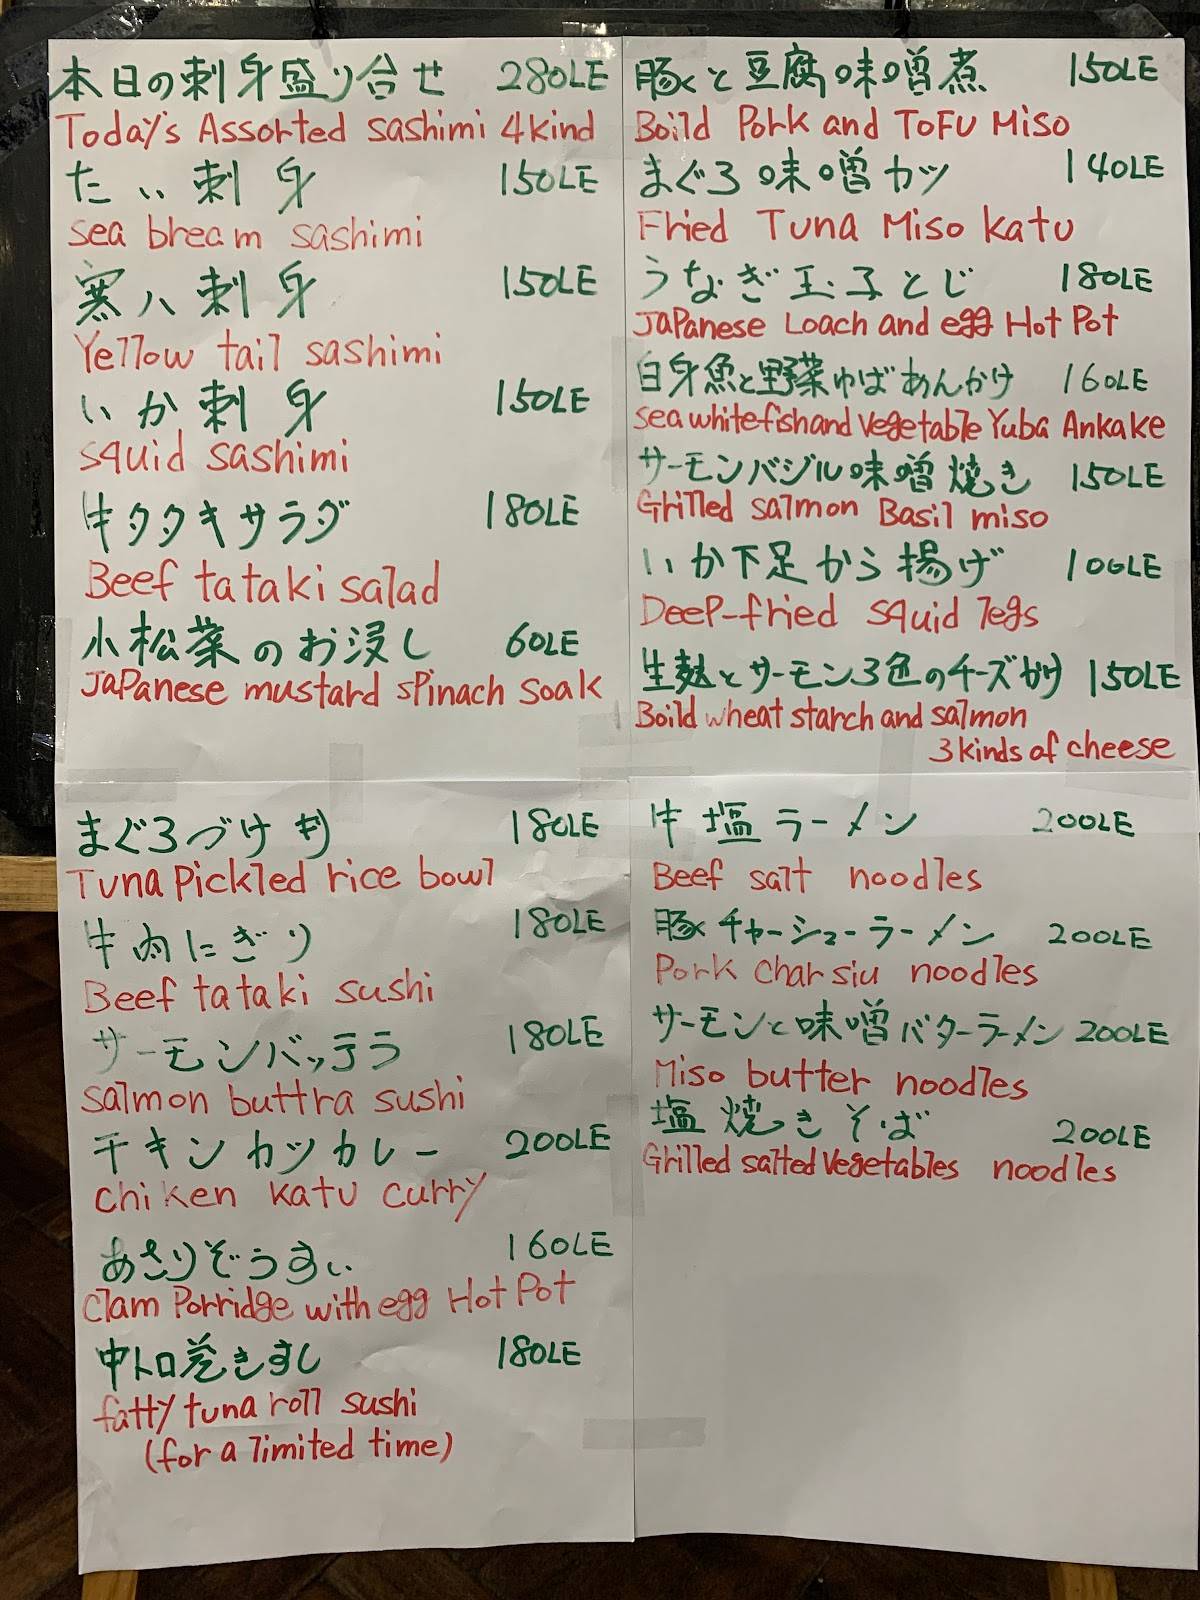 本日の刺身盛り合せ 280LE
Today's Assorted sashimi 4kind
たい刺身 150LE
sea bream sashimi
寒八刺身 150LE
Yellow tail sashimi
いか刺身 150LE
squid sashimi
牛タタキサラダ 180LE
Beef tataki salad
小松菜のお浸し 60LE
Japanese mustard spinach soak
豚と豆腐味噌煮 150LE
Boild Pork and ToFu Miso
まぐろ味噌カツ 140LE
Fried Tuna Miso katu
うなぎ玉子とじ 180LE
Japanese Loach and egg Hot Pot
白身魚と野菜ゆばあんかけ 160LE
sea whitefish and vegetable Yuba Ankake
サーモンバジル味噌焼き 150LE
Grilled salmon Basil miso
いか下足から揚げ 100LE
Deep-fried squid legs
生麩とサーモン3色のチーズかけ 150LE
Boild wheat starch and salmon
3kinds of cheese
まぐろづけ丼 180LE
Tuna Pickled rice bowl
牛肉にぎり 180LE
Beef tataki sushi
サーモンバッテラ 180LE
salmon buttra sushi
チキンカツカレー 200LE
chiken katu curry
あさりぞうすい 160LE
clam Porridge with egg Hot Pot
中トロ巻きすし 180LE
fatty tuna roll sushi
(for a limited time)
牛塩ラーメン 200LE
Beef salt noodles
豚チャーシューラーメン 200LE
Pork char siu noodles
サーモンと味噌バターラーメン 200LE
Miso butter noodles
塩焼きそば 200LE
Grilled salted vegetables noodles